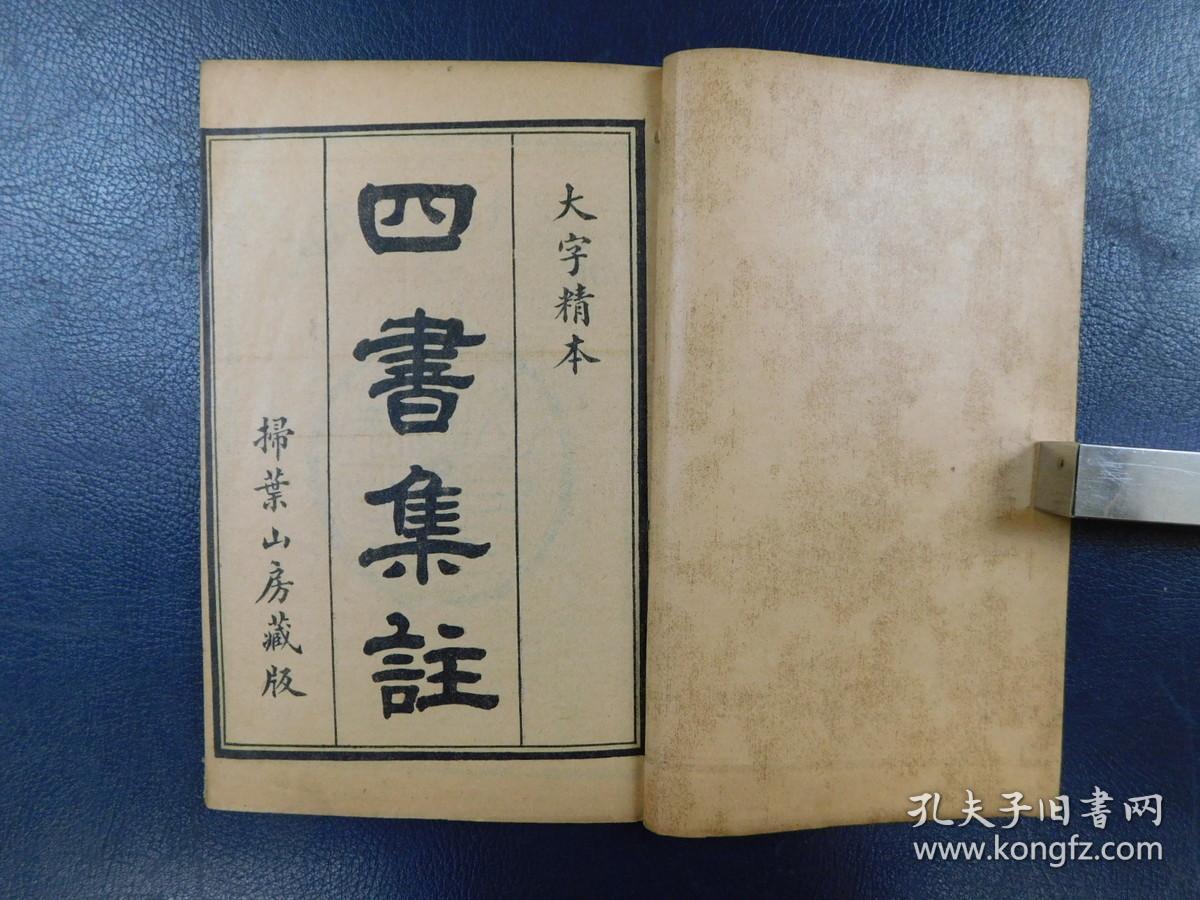 大字精本
四書集註
掃葉山房藏版
孔夫子旧书网
www.kongfz.com